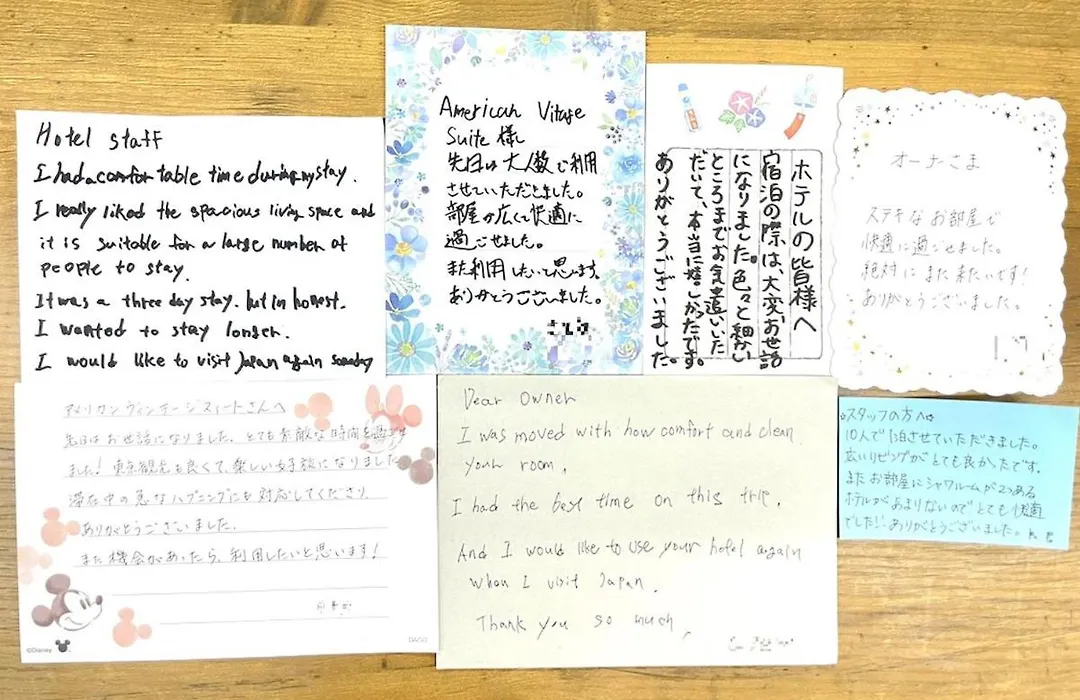 Hotel staff
I had a comfortable time during my stay.
I really liked the spacious living space and
it is suitable for a large number of
people to stay.
It was a three day stay. but in honest.
I wanted to stay longer.
I would like to visit Japan again someday
American Vitage
Suite 様
先日は大人数で利用
させていただきました。
部屋が広くて快適に
過ごせました。
また利用したいと思います。
ありがとうございました。
ホテルの皆様へ
宿泊の際は、大変お世話
になりました。色々と細かい
ところまでお気遣いいた
だいて、本当に嬉しかったです。
ありがとうございました。
オーナーさま
ステキなお部屋で
快適に過ごせました。
絶対にまた来たいです!
ありがとうございました。
アメリカンヴィンテージスイートさんへ
先日はお世話になりました。とても素敵な時間を過ごせ
ました!東京観光も良くて、楽しい女子旅になりました
滞在中の急なハプニングにも対応してくださり
ありがとうございました。
また機会があったら、利用したいと思います!
©Disney
DAISO
Dear Owner
I was moved with how comfort and clean
your room.
I had the best time on this trip.
And I would like to use your hotel again
when I visit Japan.
Thank you so much,
☆スタッフの方へ☆
10人で1泊させていただきました。
広いリビングがとても良かったです。
またお部屋にシャワールームが2つある
ホテルがあまりないのでとても快適
でした!!ありがとうございました。